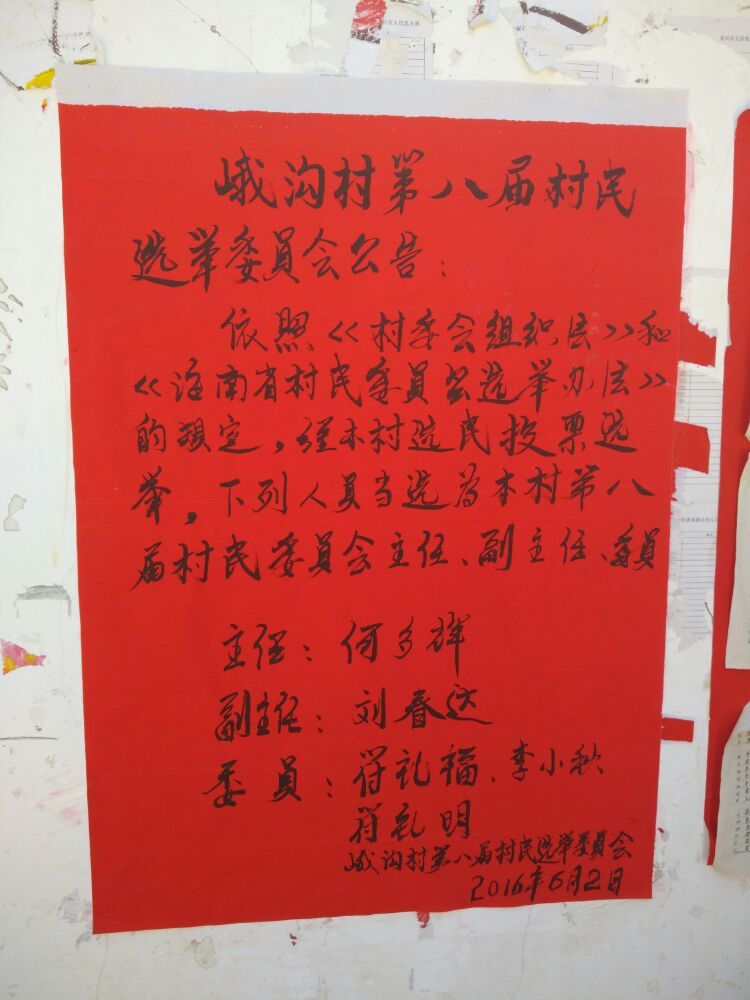 峨沟村第八届村民
选举委员会公告：
依照《村委会组织法》和
《海南省村民委员会选举办法》
的规定，经本村选民投票选
举，下列人员当选为本村第八
届村民委员会主任、副主任、委员
主任：何多辉
副主任：刘春达
委员：符礼福、李小秋
符礼明
峨沟村第八届村民选举委员会
2016年6月2日